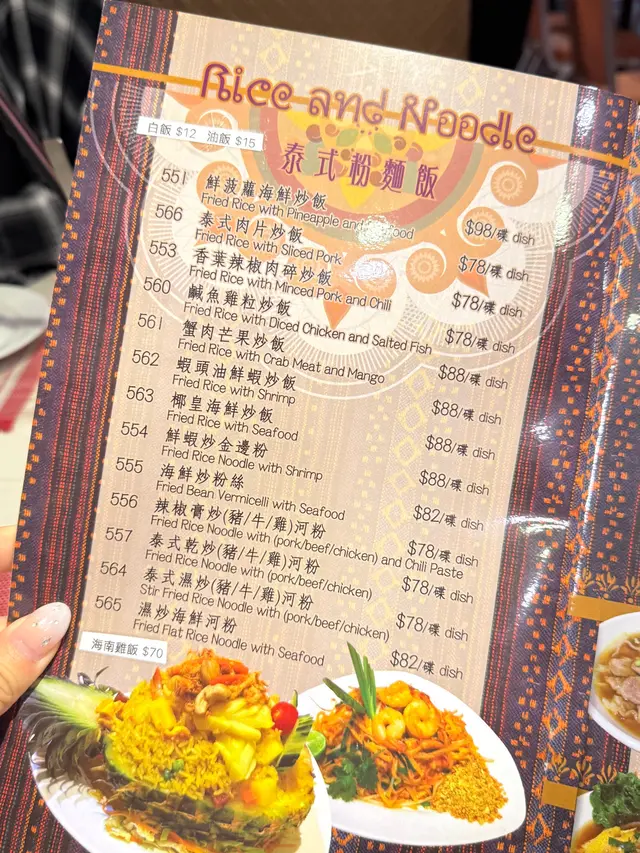 Rice and Noodle
白飯 $12 油飯 $15
泰式粉麵飯
551 鮮菠蘿海鮮炒飯
Fried Rice with Pineapple and Seafood $98/碟 dish
566 泰式肉片炒飯
Fried Rice with Sliced Pork $78/碟 dish
553 香葉辣椒肉碎炒飯
Fried Rice with Minced Pork and Chili $78/碟 dish
560 鹹魚雞粒炒飯
Fried Rice with Diced Chicken and Salted Fish $78/碟 dish
561 蟹肉芒果炒飯
Fried Rice with Crab Meat and Mango $88/碟 dish
562 蝦頭油鮮蝦炒飯
Fried Rice with Shrimp $88/碟 dish
563 椰皇海鮮炒飯
Fried Rice with Seafood $88/碟 dish
554 鮮蝦炒金邊粉
Fried Rice Noodle with Shrimp $88/碟 dish
555 海鮮炒粉絲
Fried Bean Vermicelli with Seafood $82/碟 dish
556 辣椒膏炒(豬/牛/雞)河粉
Fried Rice Noodle with (pork/beef/chicken) and Chili Paste $78/碟 dish
557 泰式乾炒(豬/牛/雞)河粉
Fried Rice Noodle with (pork/beef/chicken) $78/碟 dish
564 泰式濕炒(豬/牛/雞)河粉
Stir Fried Rice Noodle with (pork/beef/chicken) $78/碟 dish
565 濕炒海鮮河粉
Fried Flat Rice Noodle with Seafood $82/碟 dish
海南雞飯 $70